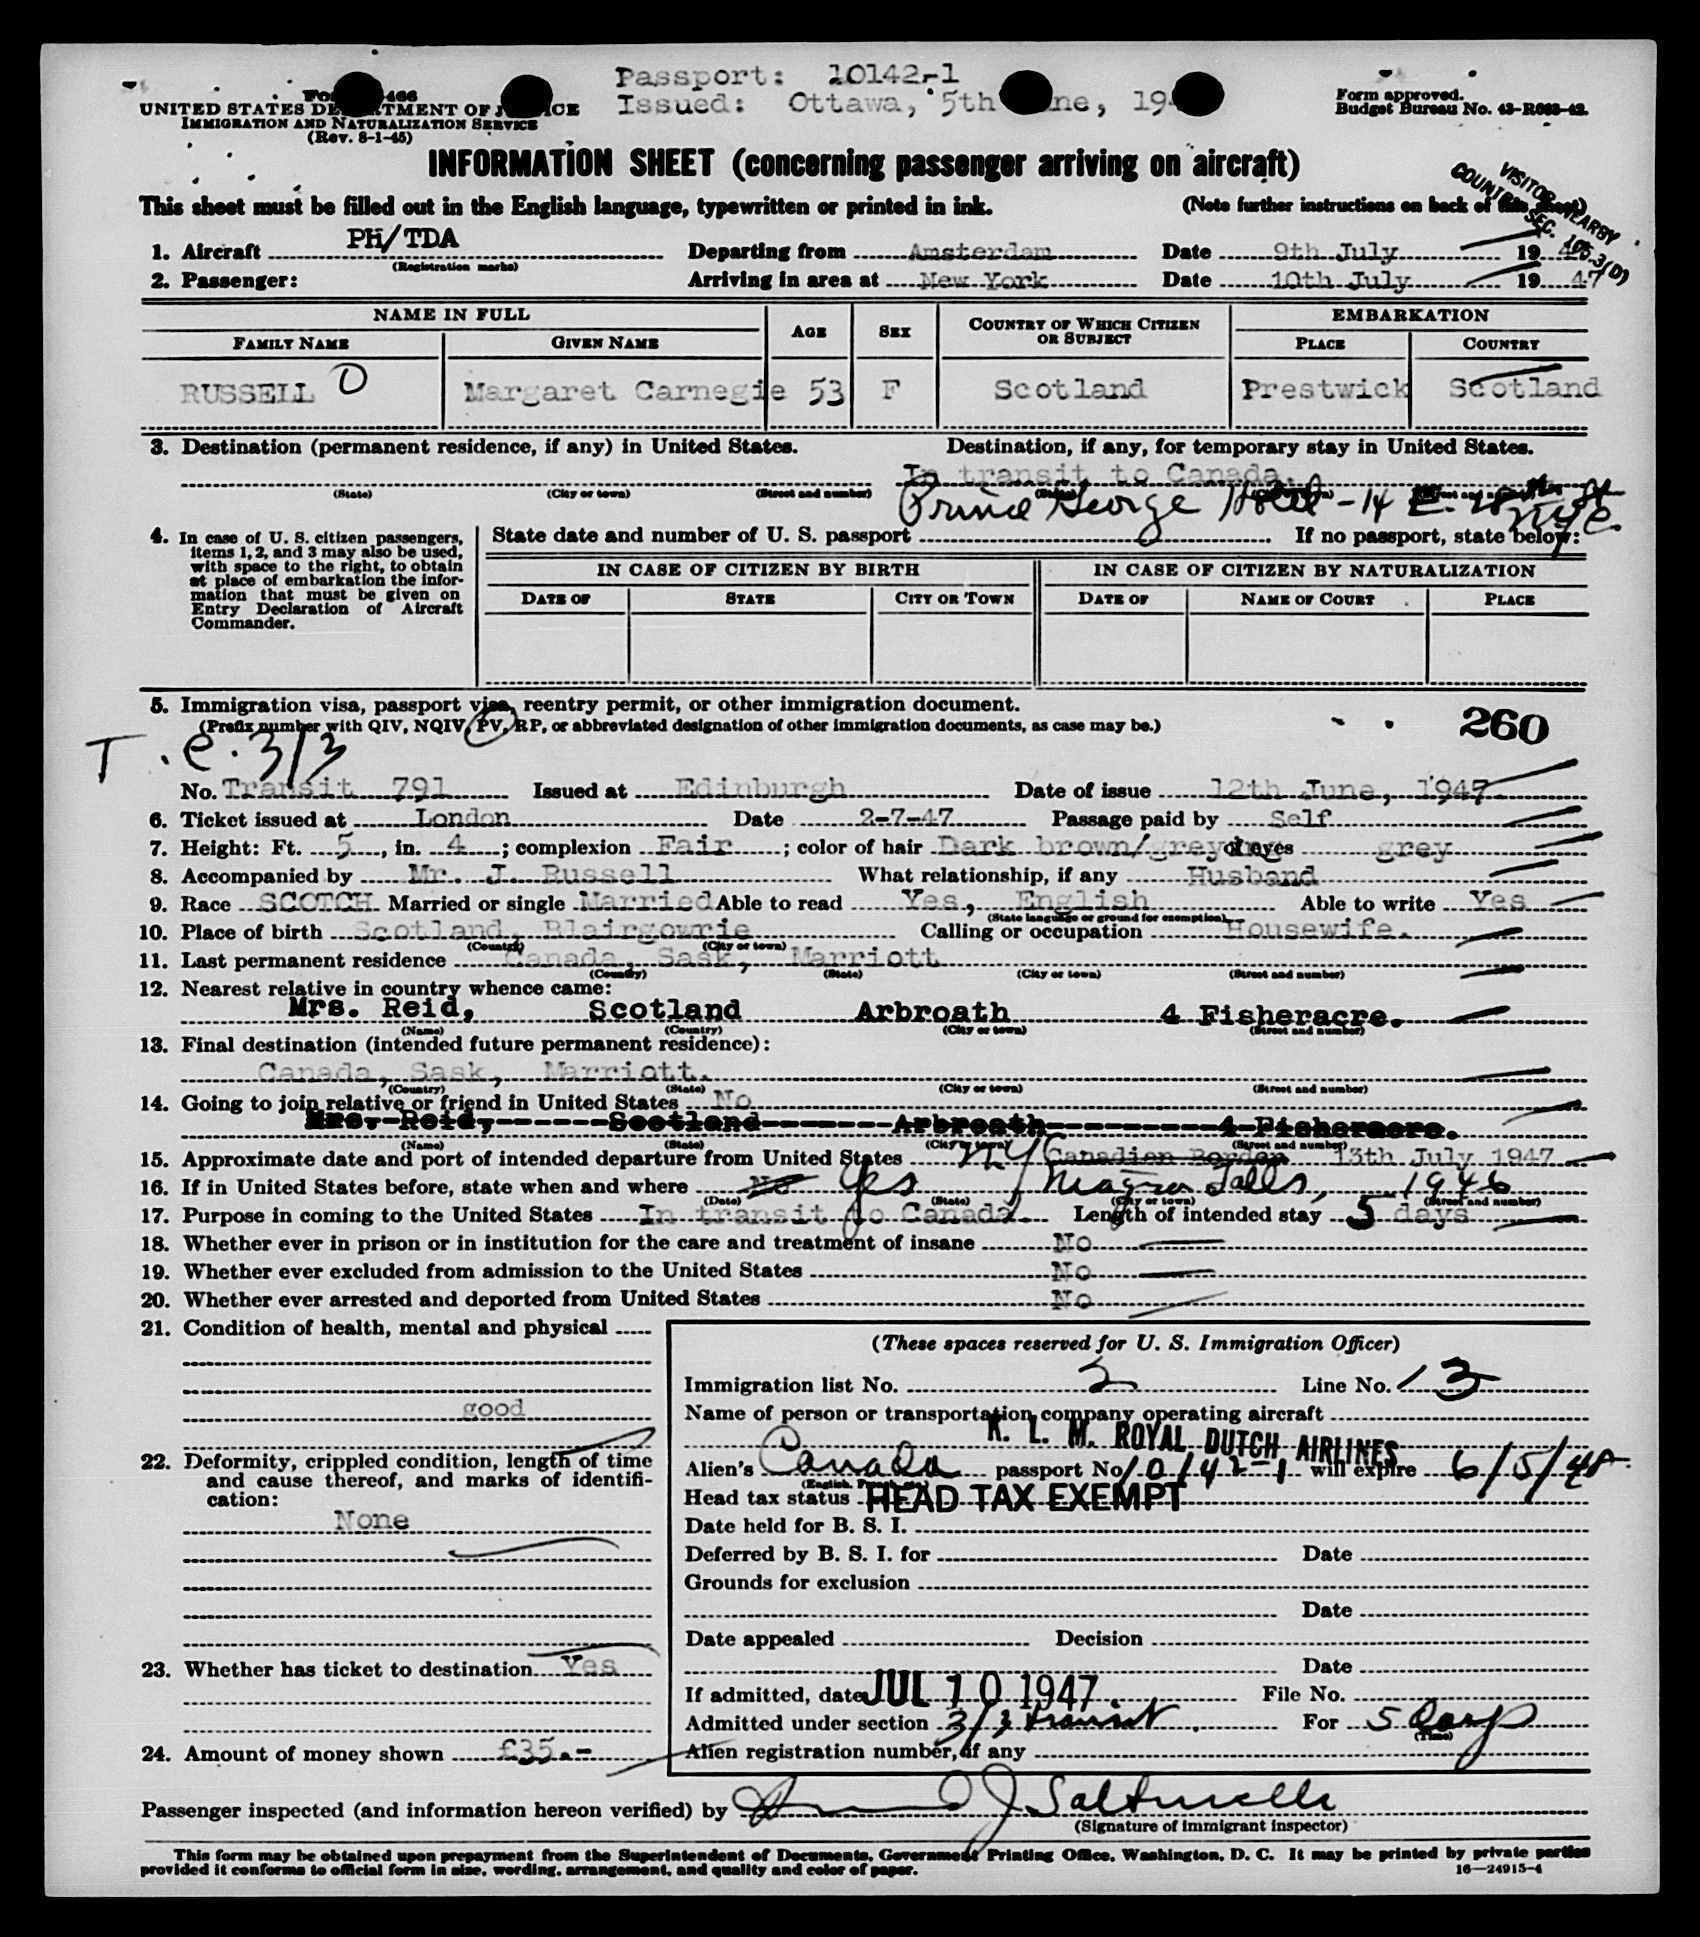 Passport: 10142-1
UNITED STATES DEPARTMENT OF JUSTICE
Issued: Ottawa, 5th
IMMIGRATION AND NATURALIZATION SERVICE
(Rev. 8-1-45)
Form approved.
Budget Bureau No.
INFORMATION SHEET (concerning passenger arriving on aircraft)
VISITOR NEARBY
COUNTRY SEC. 105.3(D)
This sheet must be filled out in the English language, typewritten or printed in ink. (Note further instructions on back of this sheet)
1. Aircraft PH/TDA Departing from Amsterdam Date 9th July 19
(Registration marks)
2. Passenger: Arriving in area at New York Date 10th July 19 47
NAME IN FULL AGE SEX COUNTRY OF WHICH CITIZEN OR SUBJECT EMBARKATION
FAMILY NAME GIVEN NAME PLACE COUNTRY
RUSSELL Margaret Carnegie 53 F Scotland Prestwick Scotland
3. Destination (permanent residence, if any) in United States. Destination, if any, for temporary stay in United States.
In transit to Canada.
(State) (City or town) (Street and number)
Prince George Hotel - 14 E. 28th St NYC.
4. In case of U. S. citizen passengers, items 1, 2, and 3 may also be used, with space to the right, to obtain at place of embarkation the information that must be given on Entry Declaration of Aircraft Commander.
State date and number of U. S. passport If no passport, state below:
IN CASE OF CITIZEN BY BIRTH IN CASE OF CITIZEN BY NATURALIZATION
DATE OF STATE CITY OR TOWN DATE OF NAME OF COURT PLACE
5. Immigration visa, passport visa, reentry permit, or other immigration document.
(Prefix number with QIV, NQIV, PV, RP, or abbreviated designation of other immigration documents, as case may be.)
260
T.C. 3/3
No. Transit 791 Issued at Edinburgh Date of issue 12th June, 1947
6. Ticket issued at London Date 2-7-47 Passage paid by Self
7. Height: Ft. 5, in. 4; complexion Fair; color of hair Dark brown/greying of eyes grey
8. Accompanied by Mr. J. Russell What relationship, if any Husband
9. Race SCOTCH Married or single Married Able to read Yes, English Able to write Yes
(State language or ground for exemption)
10. Place of birth Scotland, Blairgowrie Calling or occupation Housewife.
(Country) (City or town)
11. Last permanent residence Canada, Sask, Marriott
(Country) (State) (City or town) (Street and number)
12. Nearest relative in country whence came:
Mrs. Reid, Scotland Arbroath 4 Fisheracre.
(Name) (Country) (City or town) (Street and number)
13. Final destination (intended future permanent residence):
Canada, Sask, Marriott.
(Country) (State) (City or town) (Street and number)
14. Going to join relative or friend in United States No
Mrs. Reid, Scotland Arbroath 4 Fisheracre.
(Name) (State) (City or town) (Street and number)
15. Approximate date and port of intended departure from United States NY Canadian Border 13th July 1947
16. If in United States before, state when and where No Yes Niagra Falls, 1946
(Date) (State) (City or town) (Street and number)
17. Purpose in coming to the United States In transit to Canada. Length of intended stay 5 days
18. Whether ever in prison or in institution for the care and treatment of insane No
19. Whether ever excluded from admission to the United States No
20. Whether ever arrested and deported from United States No
21. Condition of health, mental and physical
good
22. Deformity, crippled condition, length of time and cause thereof, and marks of identification:
None
23. Whether has ticket to destination Yes
24. Amount of money shown £35.-
(These spaces reserved for U. S. Immigration Officer)
Immigration list No. 2 Line No. 13
Name of person or transportation company operating aircraft
K. L. M. ROYAL DUTCH AIRLINES
Alien's Canada passport No. 10142-1 will expire 6/5/48
Head tax status HEAD TAX EXEMPT
Date held for B. S. I.
Deferred by B. S. I. for Date
Grounds for exclusion
Date
Date appealed Decision
Date
If admitted, date JUL 10 1947. File No.
Admitted under section 3/3 transit For 5 Days
(Time)
Alien registration number, if any
Passenger inspected (and information hereon verified) by
(Signature of immigrant inspector)
This form may be obtained upon prepayment from the Superintendent of Documents, Government Printing Office, Washington, D. C. It may be printed by private parties
provided it conforms to official form in size, wording, arrangement, and quality and color of paper. 16—24915-4